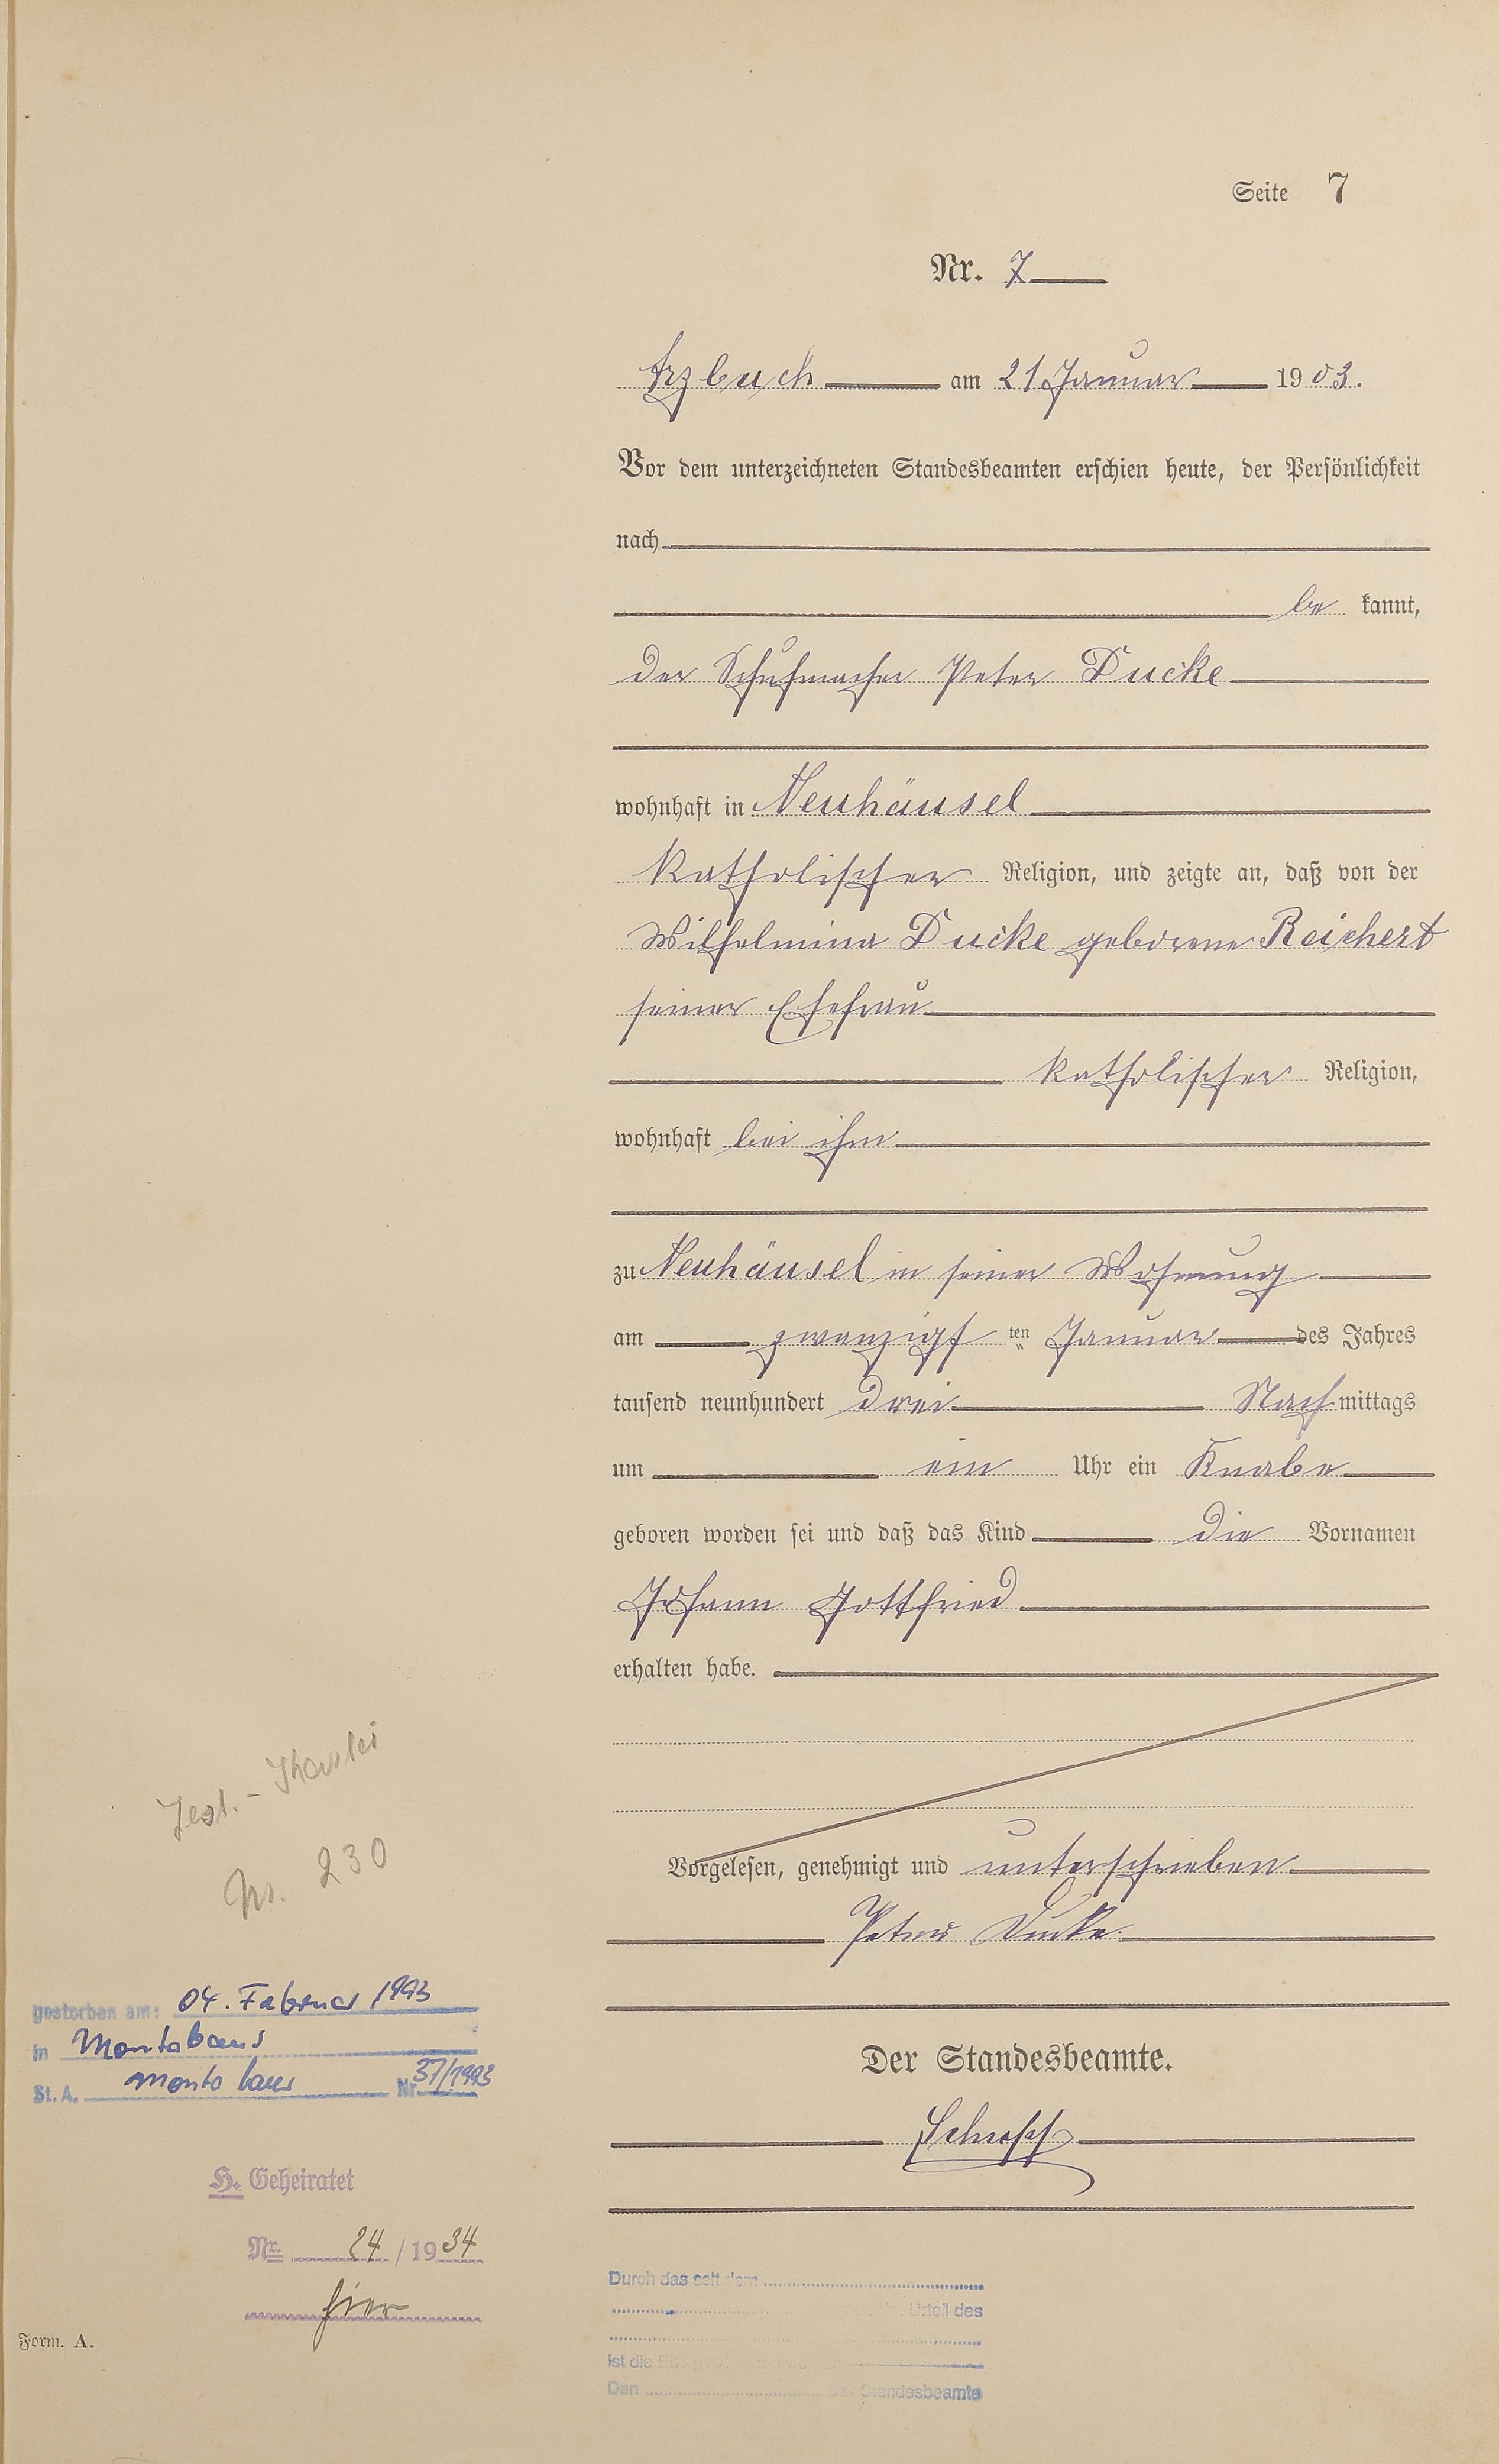 Seite 7
Nr. 7
Arzbach am 21 Januar 1903.
Vor dem unterzeichneten Standesbeamten erschien heute, der Persönlichkeit
nach
be kannt,
der Schuhmacher Peter Ducke
wohnhaft in Neuhäusel
katholischer Religion, und zeigte an, daß von der
Wilhelmina Ducke geborene Reichert
seiner Ehefrau
katholischer Religion,
wohnhaft bei ihm
zu Neuhäusel in seiner Wohnung
am zwanzigs ten Januar des Jahres
tausend neunhundert drei Nach mittags
um ein Uhr ein Knabe
geboren worden sei und daß das Kind die Vornamen
Johann Gottfried
erhalten habe.
Vorgelesen, genehmigt und unterschrieben
Peter Ducke.
Der Standesbeamte.
Nr. 230
gestorben am: 04. Februar 1993
in Montabaur
St. A. Montabaur Nr. 37/1993
H. Geheiratet
Nr. 24/1934
hier
Form. A.
Durch das seit dem
Urteil des
ist die Ehe
Den Der Standesbeamte